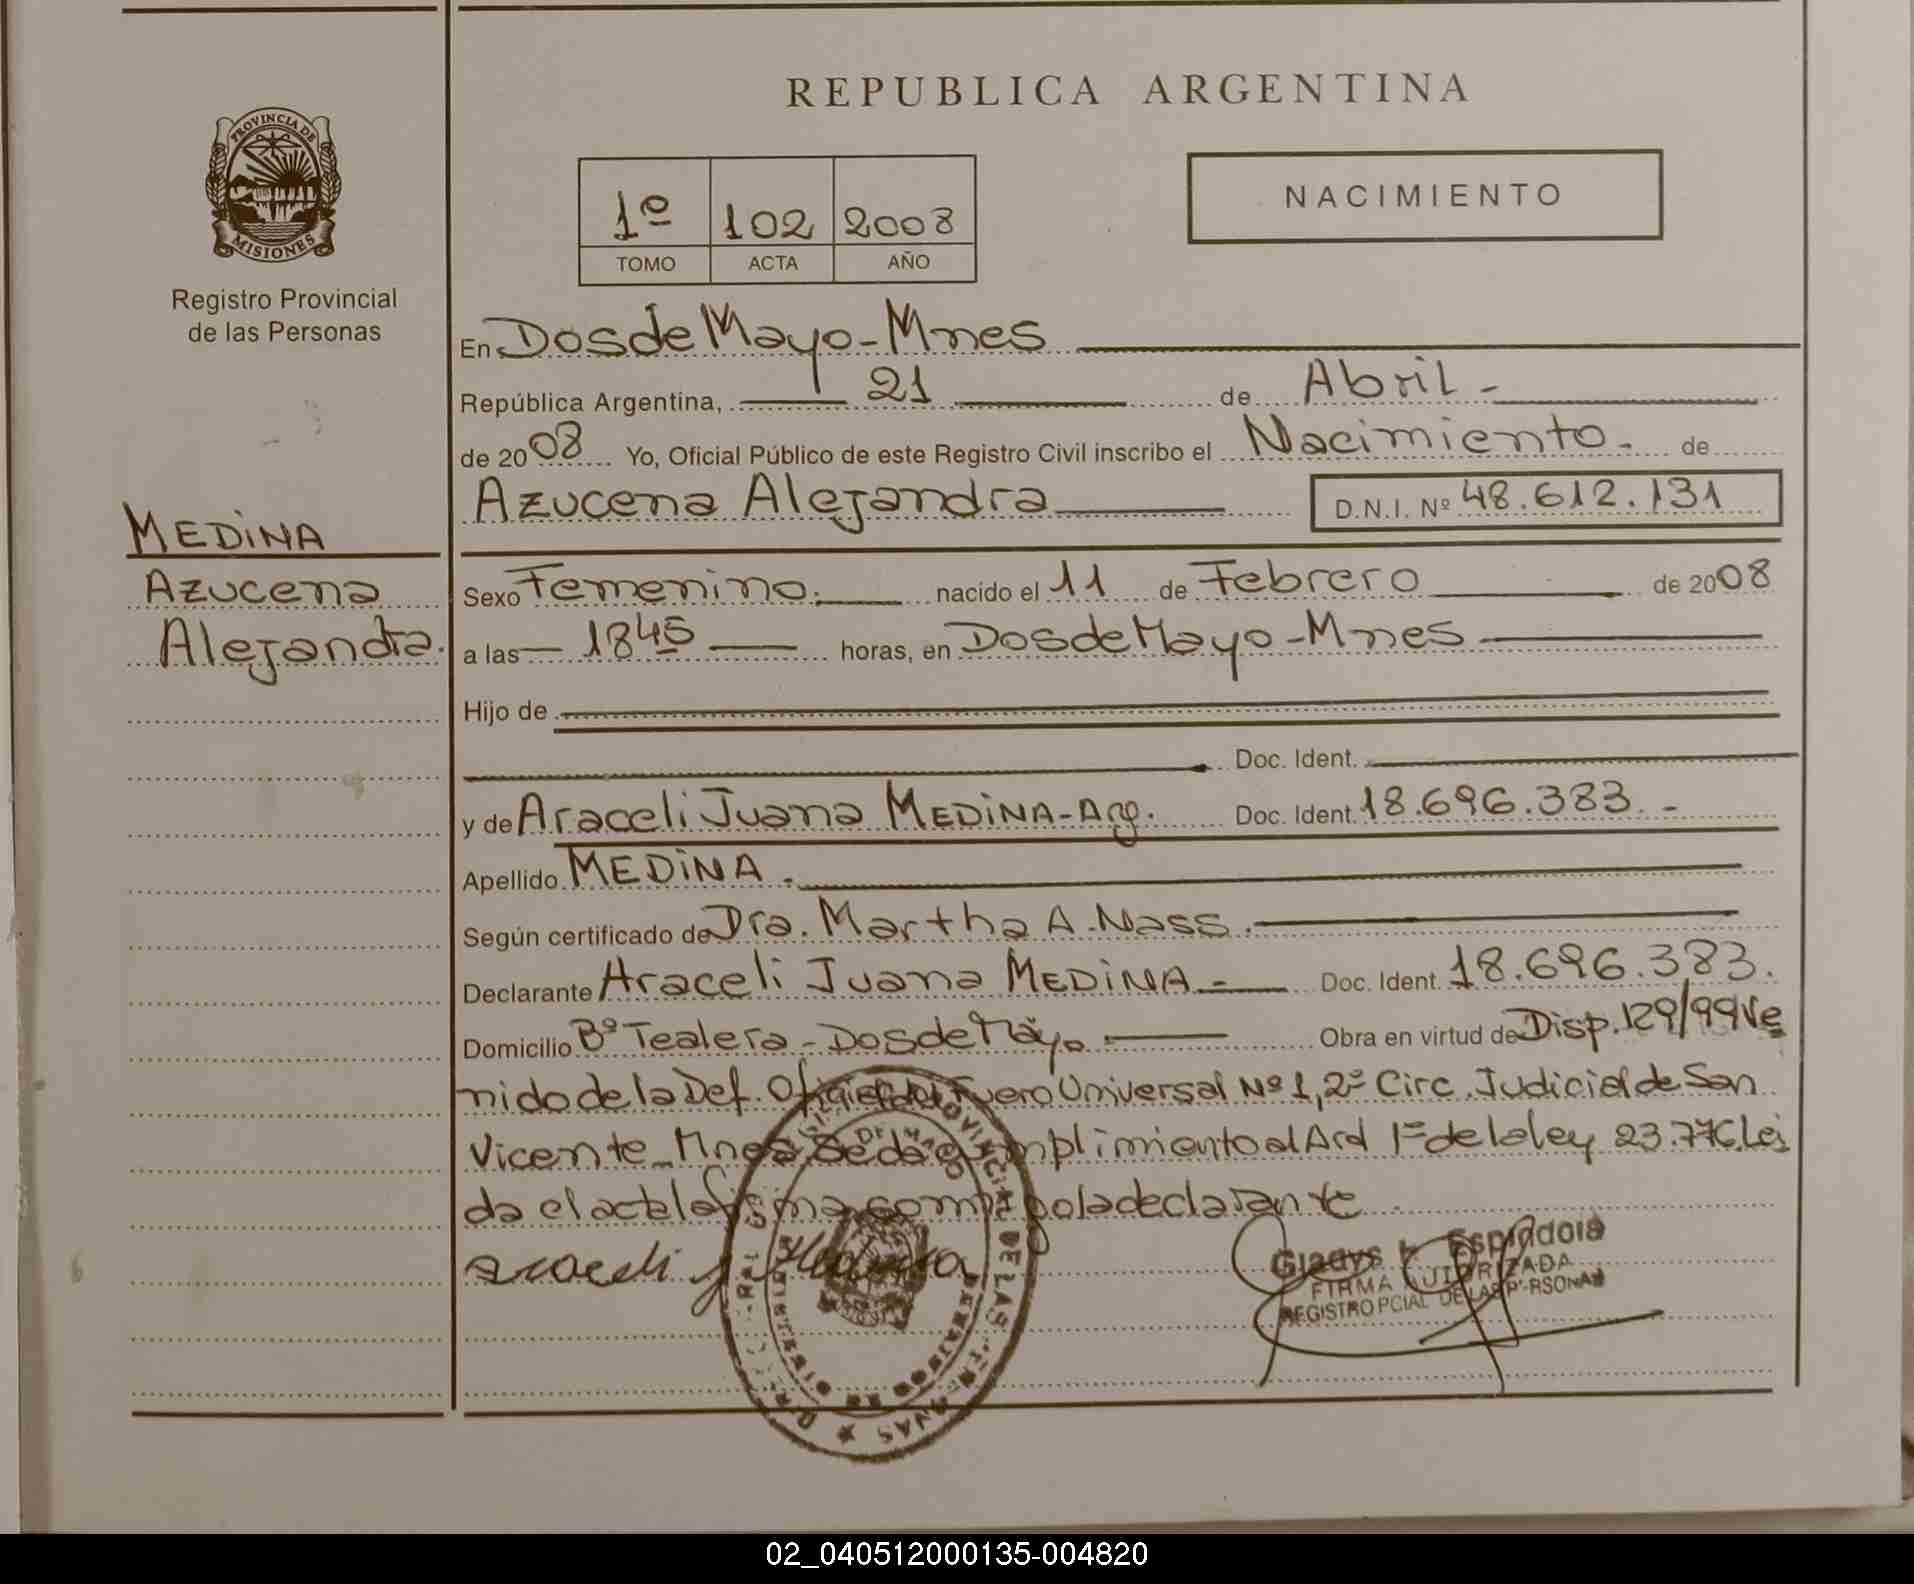 REPUBLICA ARGENTINA
PROVINCIA DE
MISIONES
Registro Provincial
de las Personas
NACIMIENTO
1º 102 2008
TOMO ACTA AÑO
En Dos de Mayo - Mnes
República Argentina, 21 de Abril -
de 2008 Yo, Oficial Público de este Registro Civil inscribo el Nacimiento. de
Azucena Alejandra D.N.I. Nº 48.612.131
MEDINA
Azucena
Alejandra.
Sexo Femenino. nacido el 11 de Febrero de 2008
a las 1845 horas, en Dos de Mayo - Mnes
Hijo de
Doc. Ident.
y de Araceli Juana MEDINA - Arg. Doc. Ident. 18.696.383. -
Apellido MEDINA.
Según certificado de Dra. Martha A. Nass.
Declarante Araceli Juana MEDINA - Doc. Ident. 18.696.383.
Domicilio Bº Tealera - Dos de Mayo Obra en virtud de Disp. 129/99 Ve
nido de la Def. Oficial del Fuero Universal Nº 1, 2º Circ. Judicial de San
Vicente - Mnes. Se da cumplimiento al Ard 1º de la ley 23.776. Lei
da el acta la firma com por la declarante
Araceli J Medina
Gladys Espindola
FIRMA AUTORIZADA
REGISTRO PCIAL DE LAS PERSONAS
02_040512000135-004820